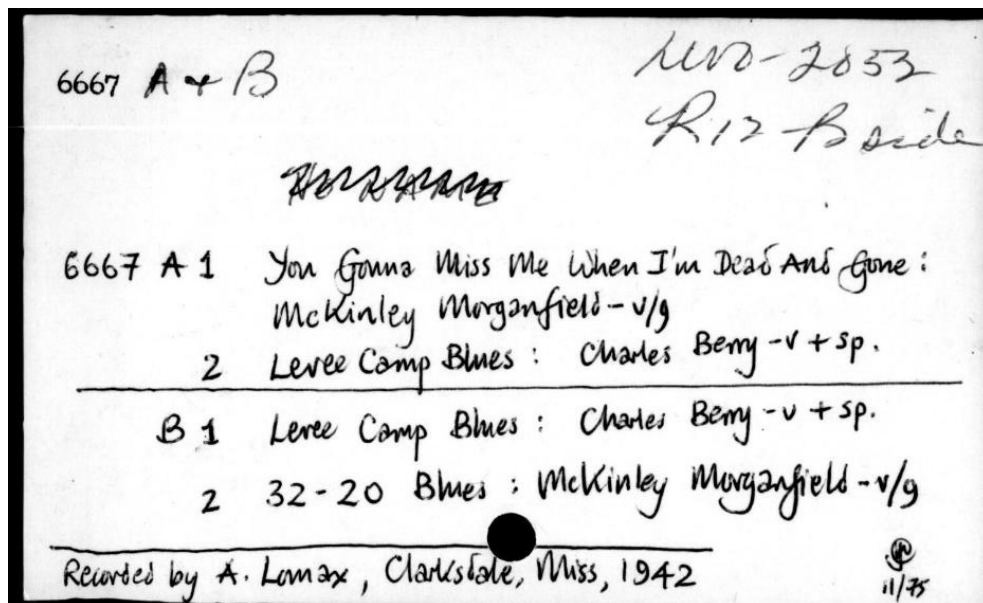 6667 A + B
LWO-2653
R12 B side
6667 A 1 You Gonna Miss Me When I'm Dead And Gone:
McKinley Morganfield - v/g
2 Levee Camp Blues: Charles Berry - v + sp.
B 1 Levee Camp Blues: Charles Berry - v + sp.
2 32-20 Blues: McKinley Morganfield - v/g
Recorded by A. Lomax, Clarksdale, Miss, 1942
11/75